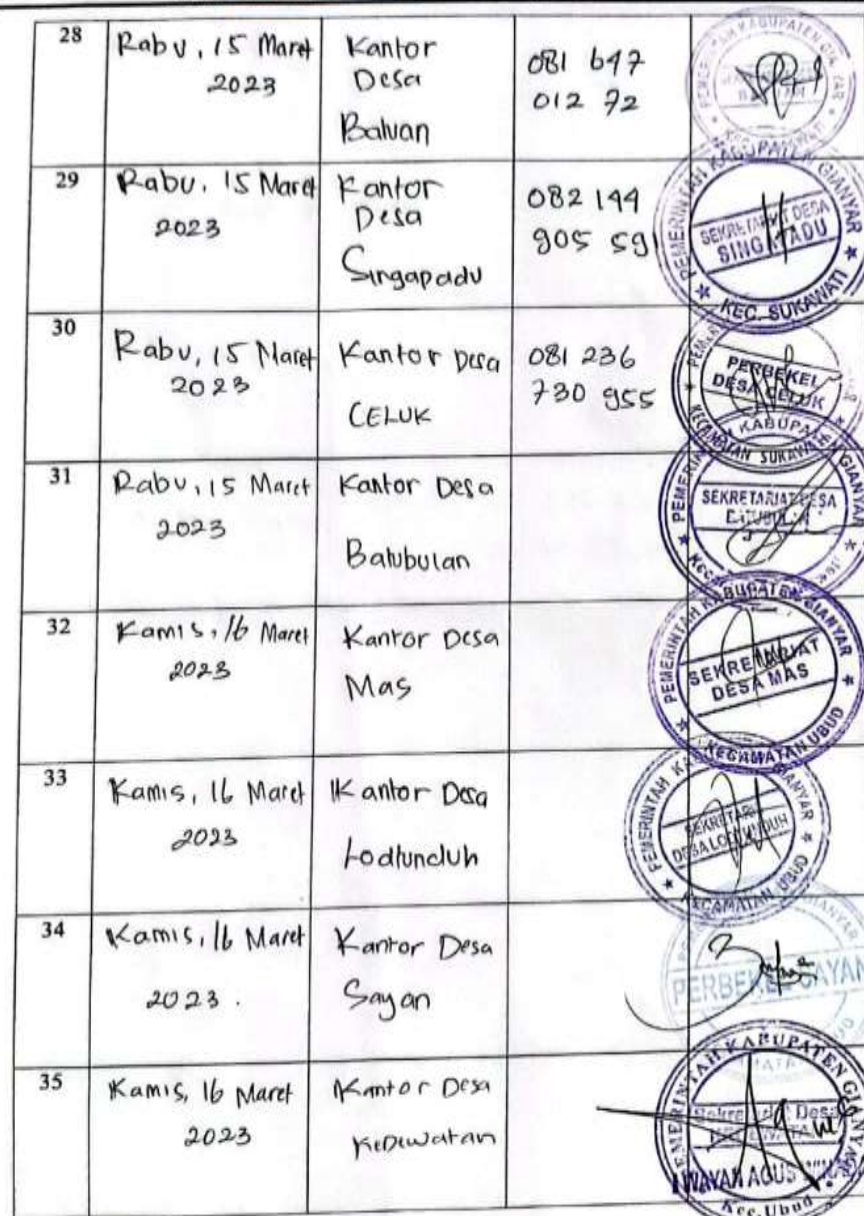 28
Rabu, 15 Maret
2023
Kantor
Desa
Batuan
081 647
012 72
29
Rabu, 15 Maret
2023
Kantor
Desa
Singapadu
082 144
905 591
PEMERINTAH KABUPATEN GIANYAR
SEKRETARIAT DESA
SINGAPADU
KEC. SUKAWATI
30
Rabu, 15 Maret
2023
Kantor Desa
CELUK
081 236
730 955
PERBEKEL
DESA CELUK
KECAMATAN SUKAWATI
31
Rabu, 15 Maret
2023
Kantor Desa
Batubulan
SEKRETARIAT DESA
BATUBULAN
32
Kamis, 16 Maret
2023
Kantor Desa
Mas
PEMERINTAH KABUPATEN GIANYAR
SEKRETARIAT
DESA MAS
KECAMATAN UBUD
33
Kamis, 16 Maret
2023
Kantor Desa
Lodtunduh
PEMERINTAH KABUPATEN GIANYAR
DESA LODTUNDUH
KECAMATAN UBUD
34
Kamis, 16 Maret
2023.
Kantor Desa
Sayan
PERBEKEL SAYAN
35
Kamis, 16 Maret
2023
Kantor Desa
Kedewatan
PEMERINTAH KABUPATEN GIANYAR
I WAYAN AGUS
Kec. Ubud